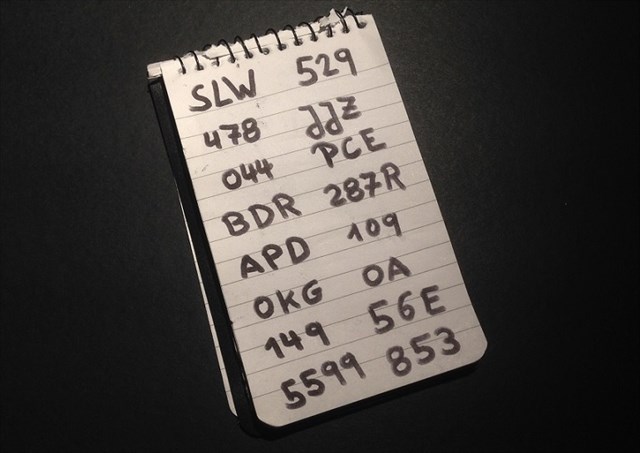 SLW 529
478 JJZ
044 PCE
BDR 287R
APD 109
OKG OA
149 56E
5599 853